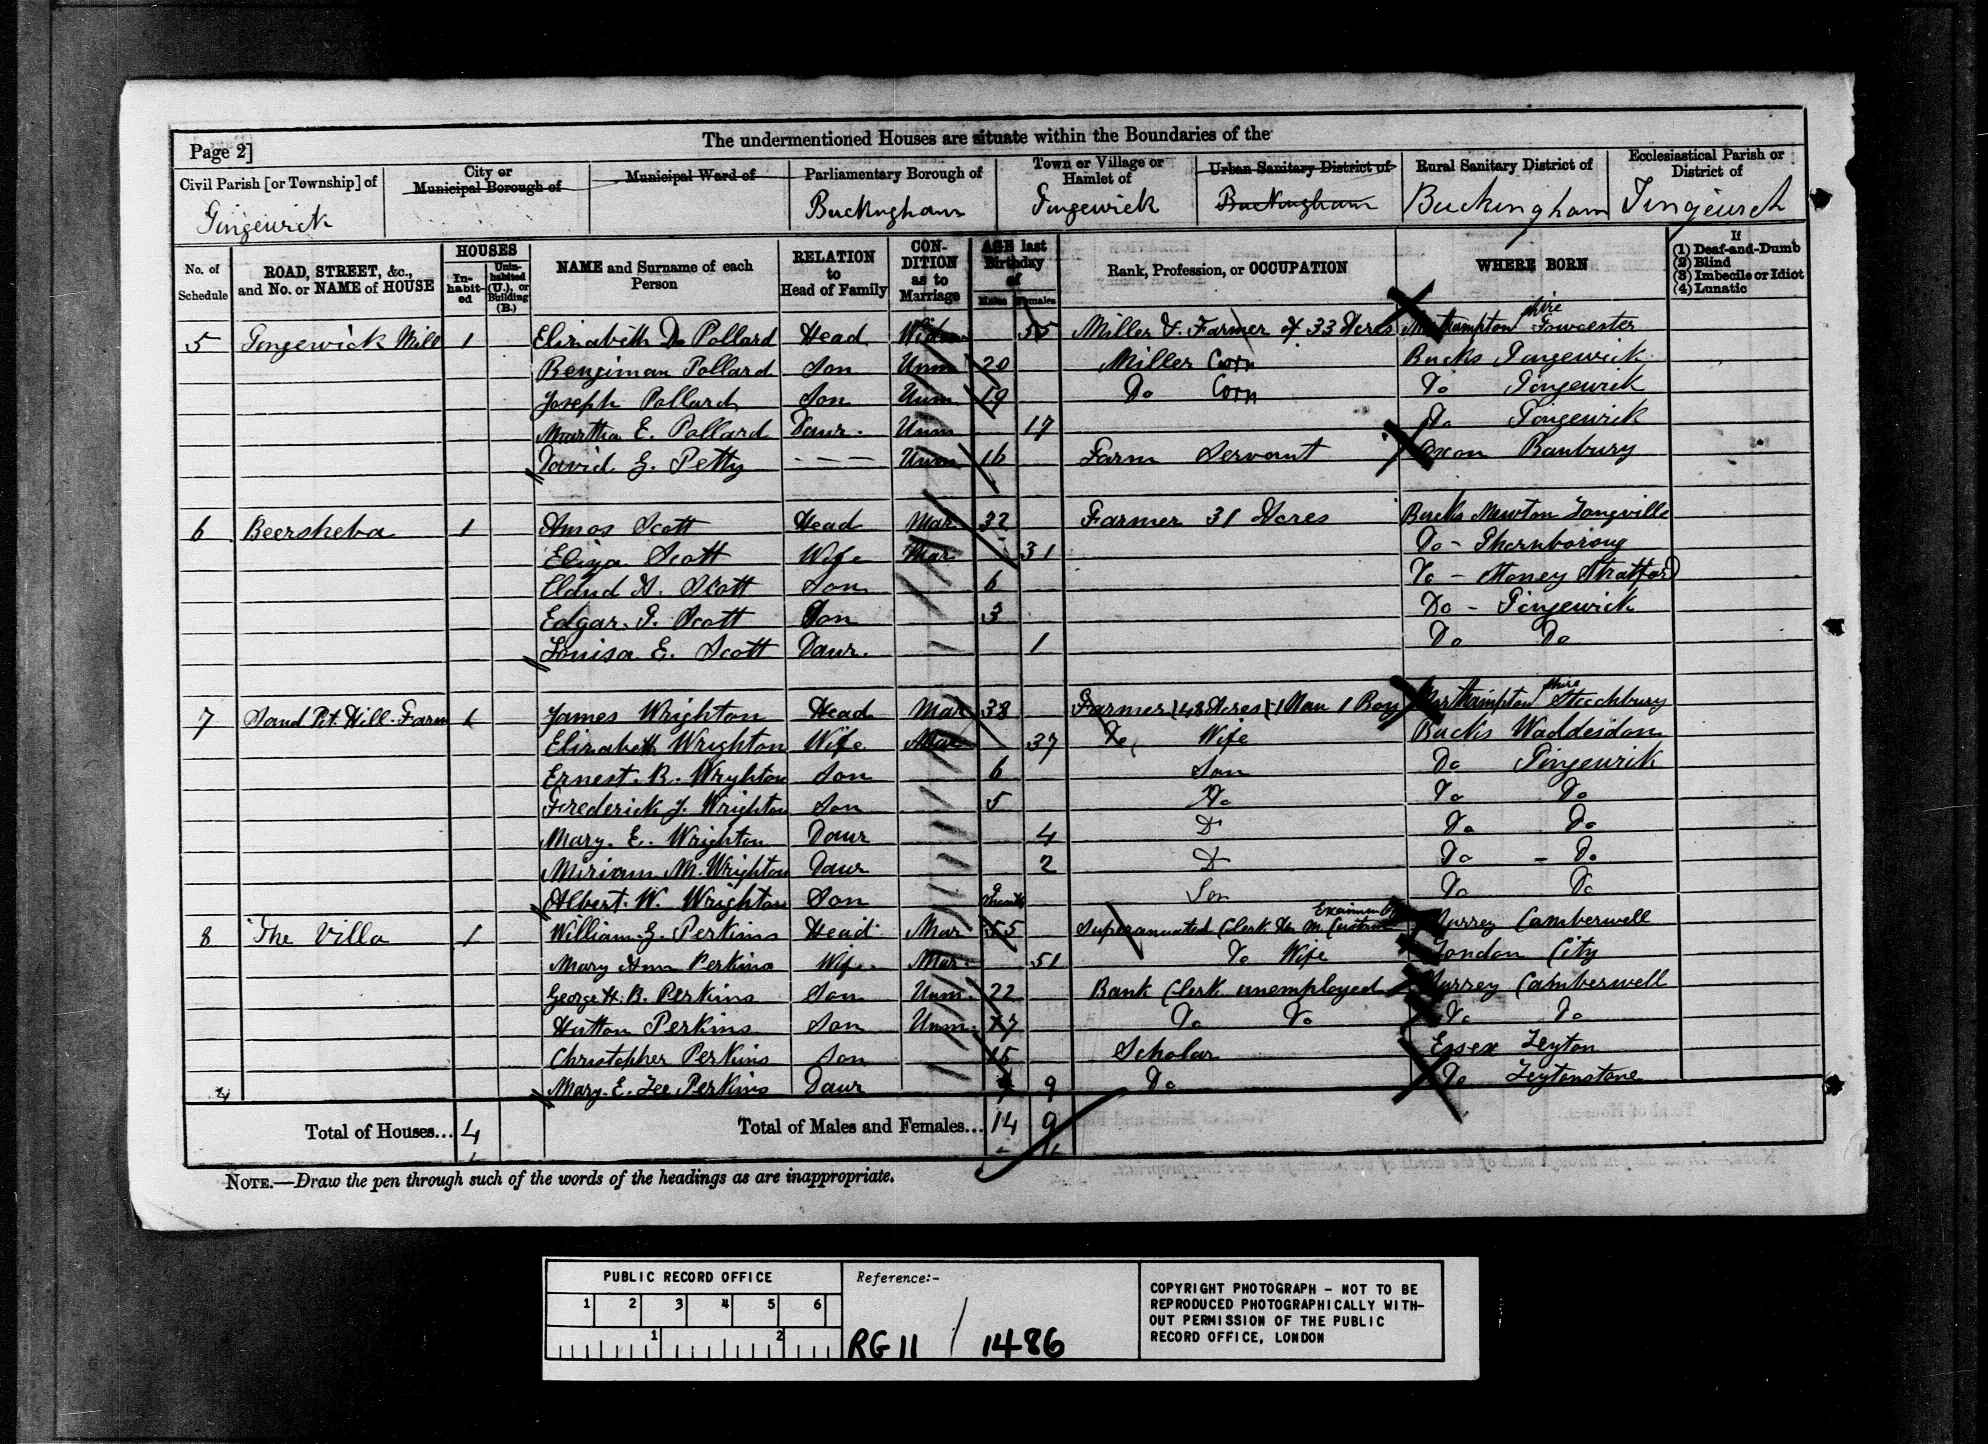 Page 2]
The undermentioned Houses are situate within the Boundaries of the
Civil Parish [or Township] of
Tingewick
City or Municipal Borough of
Municipal Ward of
Parliamentary Borough of
Buckingham
Town or Village or Hamlet of
Tingewick
Urban Sanitary District of
Buckingham
Rural Sanitary District of
Buckingham
Ecclesiastical Parish or District of
Tingewick
No. of Schedule
ROAD, STREET, &c., and No. or NAME of HOUSE
HOUSES
In-habit-ed
Unin-habited (U.), or Building (B.)
NAME and Surname of each Person
RELATION to Head of Family
CON-DITION as to Marriage
AGE last Birthday of
Males Females
Rank, Profession, or OCCUPATION
WHERE BORN
If
(1) Deaf-and-Dumb
(2) Blind
(3) Imbecile or Idiot
(4) Lunatic
5 Tingewick Mill 1 Elizabeth D. Pollard Head Widow 55 Miller & Farmer of 33 Acres Northampton shire Towcester
Benjiman Pollard Son Unm 20 Miller Corn Bucks Tingewick
Joseph Pollard Son Unm 19 Do Corn Do Tingewick
Martha E. Pollard Daur. Unm 17 Do Tingewick
David G. Petty - - - Unm 16 Farm Servant Oxon Banbury
6 Beersheba 1 Amos Scott Head Mar 32 Farmer 31 Acres Bucks Newton Longville
Eliza Scott Wife Mar 31 Do - Thornboroug
Claud A. Scott Son 6 Do - Stoney Stratford
Edgar. Scott Son 3 Do - Tingewick
Louisa E. Scott Daur. 1 Do Do
7 Sand Pit Hill Farm 1 James Wrighton Head Mar 38 Farmer 148 Acres 1 Man 1 Boy Northampton shire Steechbury
Elizabeth Wrighton Wife Mar 37 Do Wife Bucks Waddesdon
Ernest. R. Wryhton Son 6 Son Do Tingewick
Frederick J. Wrighton Son 5 Do Do Do
Mary. E. Wrighton Daur 4 D Do Do
Miriam M. Wrighton Daur 2 D Do - Do
Albert. W. Wrighton Son 9 Months Son Do Do
8 The Villa 1 William. G. Perkins Head Mar 55 Superanuated Clerk H. M. Customs Surrey Camberwell
Mary Ann Perkins Wife Mar. 51 Do Wife London City
George H. B. Perkins Son Unm. 22 Bank Clerk unemployed Surrey Camberwell
Hutton Perkins Son Unm. 17 Do Do Do Do
Christopher Perkins Son 15 Scholar Essex Leyton
Mary. E. Lee Perkins Daur 9 Do Do Leytonstone
4
Total of Houses... 4
Total of Males and Females... 14 9
NOTE.—Draw the pen through such of the words of the headings as are inappropriate.
PUBLIC RECORD OFFICE
1 2 3 4 5 6
1 2
Reference:-
RG 11 / 1486
COPYRIGHT PHOTOGRAPH - NOT TO BE
REPRODUCED PHOTOGRAPHICALLY WITH-
OUT PERMISSION OF THE PUBLIC
RECORD OFFICE, LONDON